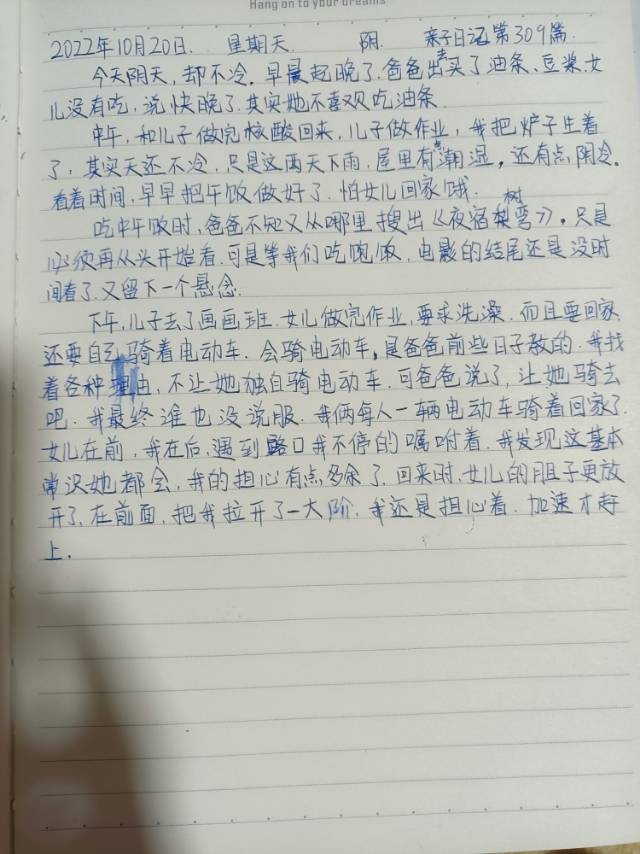 Hang on to your dreams
2022年10月20日. 星期天 阴. 亲子日记第309篇.
今天阴天,却不冷。早晨起晚了,爸爸出去买了油条、豆浆,女
儿没有吃,说快晚了,其实她不喜欢吃油条.
中午,和儿子做完核酸回来,儿子做作业,我把炉子生着
了,其实天还不冷,只是这两天下雨,屋里有潮湿,还有点阴冷。
看着时间,早早把午饭做好了.怕女儿回家饿.
吃中午饭时,爸爸不知又从哪里搜出《夜宿树弯》,只是
必须再从头开始看.可是等我们吃完饭,电影的结尾还是没时
间看了,又留下一个悬念.
下午,儿子去了画画班.女儿做完作业,要求洗澡.而且要回家,
还要自己骑着电动车.会骑电动车,是爸爸前些日子教的.我找
着各种理由,不让她独自骑电动车.可爸爸说了,让她骑去
吧.我最终谁也没说服.我俩每人一辆电动车骑着回家了.
女儿在前,我在后,遇到路口我不停的嘱咐着.我发现这基本
常识她都会,我的担心有点多余了.回来时,女儿的胆子更放
开了,在前面,把我拉开了一大阶,我还是担心着.加速才赶
上.